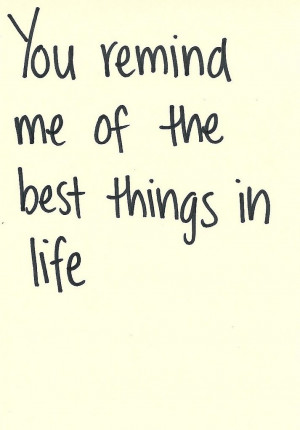 You remind
me of the
best things in
life